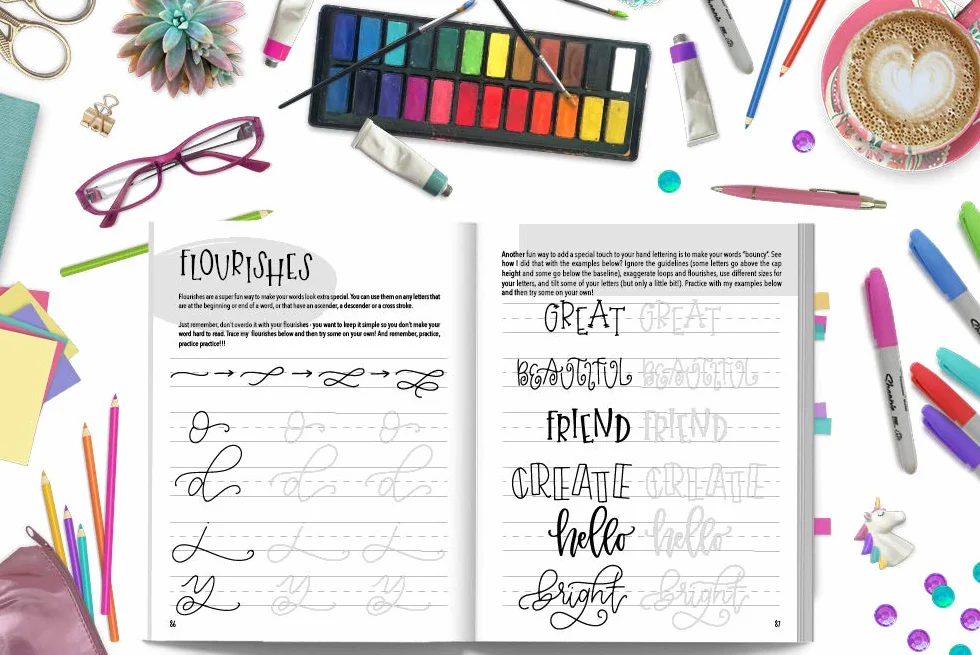 FLOURISHES
Flourishes are a super fun way to make your words look extra special. You can use them on any letters that
are at the beginning or end of a word, or that have an ascender, a descender or a cross stroke.
Just remember, don't overdo it with your flourishes - you want to keep it simple so you don't make your
word hard to read. Trace my flourishes below and then try some on your own! And remember, practice,
practice practice!!!
o o o
d d d
y y y
86
Another fun way to add a special touch to your hand lettering is to make your words "bouncy". See
how I did that with the examples below? Ignore the guidelines (some letters go above the cap
height and some go below the baseline), exaggerate loops and flourishes, use different sizes for
your letters, and tilt some of your letters (but only a little bit!). Practice with my examples below
and then try some on your own!
GREAT GREAT
BEAUTIFUL BEAUTIFUL
FRIEND FRIEND
CREATE CREATE
hello hello
bright bright
87
Sharpie